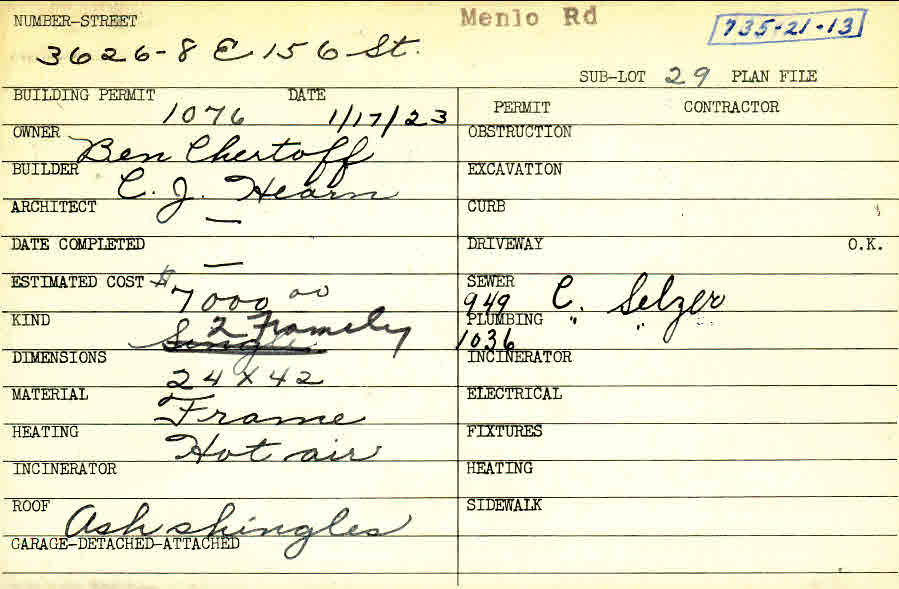 NUMBER-STREET Menlo Rd 735-21-13
3626-8 E 156 St.
SUB-LOT 29 PLAN FILE
BUILDING PERMIT 1076 DATE 1/17/23
PERMIT CONTRACTOR
OWNER Ben Chertoff
OBSTRUCTION
BUILDER C. J. Hearn
EXCAVATION
ARCHITECT —
CURB
DATE COMPLETED —
DRIVEWAY O.K.
ESTIMATED COST $7000 00
SEWER 949 C. Selzer
KIND Single 2 Framely
PLUMBING 1036 " "
DIMENSIONS 24 X 42
INCINERATOR
MATERIAL Frame
ELECTRICAL
HEATING Hot air
FIXTURES
INCINERATOR
HEATING
ROOF Ash shingles
SIDEWALK
GARAGE-DETACHED-ATTACHED